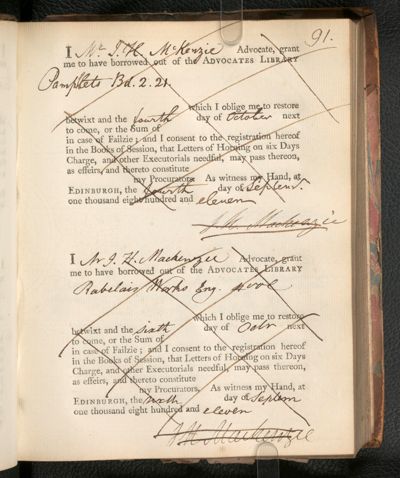 91.
I Mr J. H. McKenzie Advocate, grant
me to have borrowed out of the ADVOCATES LIBRARY
Pamphlets Bd. 2. 21.
which I oblige me to restore
betwixt and the fourth day of October next
to come, or the Sum of
in case of Failzie; and I consent to the registration hereof
in the Books of Session, that Letters of Horning on six Days
Charge, and other Executorials needful, may pass thereon,
as effeirs, and thereto constitute
my Procurators. As witness my Hand, at
EDINBURGH, the fourth day of Septemr.
one thousand eight hundred and eleven
J. H. Mackenzie
I Mr J. H. Mackenzie Advocate, grant
me to have borrowed out of the ADVOCATES LIBRARY
Rabelais Works Eng.
which I oblige me to restore
betwixt and the sixth day of Octr next
to come, or the Sum of
in case of Failzie; and I consent to the registration hereof
in the Books of Session, that Letters of Horning on six Days
Charge, and other Executorials needful, may pass thereon,
as effeirs, and thereto constitute
my Procurators. As witness my Hand, at
EDINBURGH, the sixth day of Septem
one thousand eight hundred and eleven
J H Mackenzie